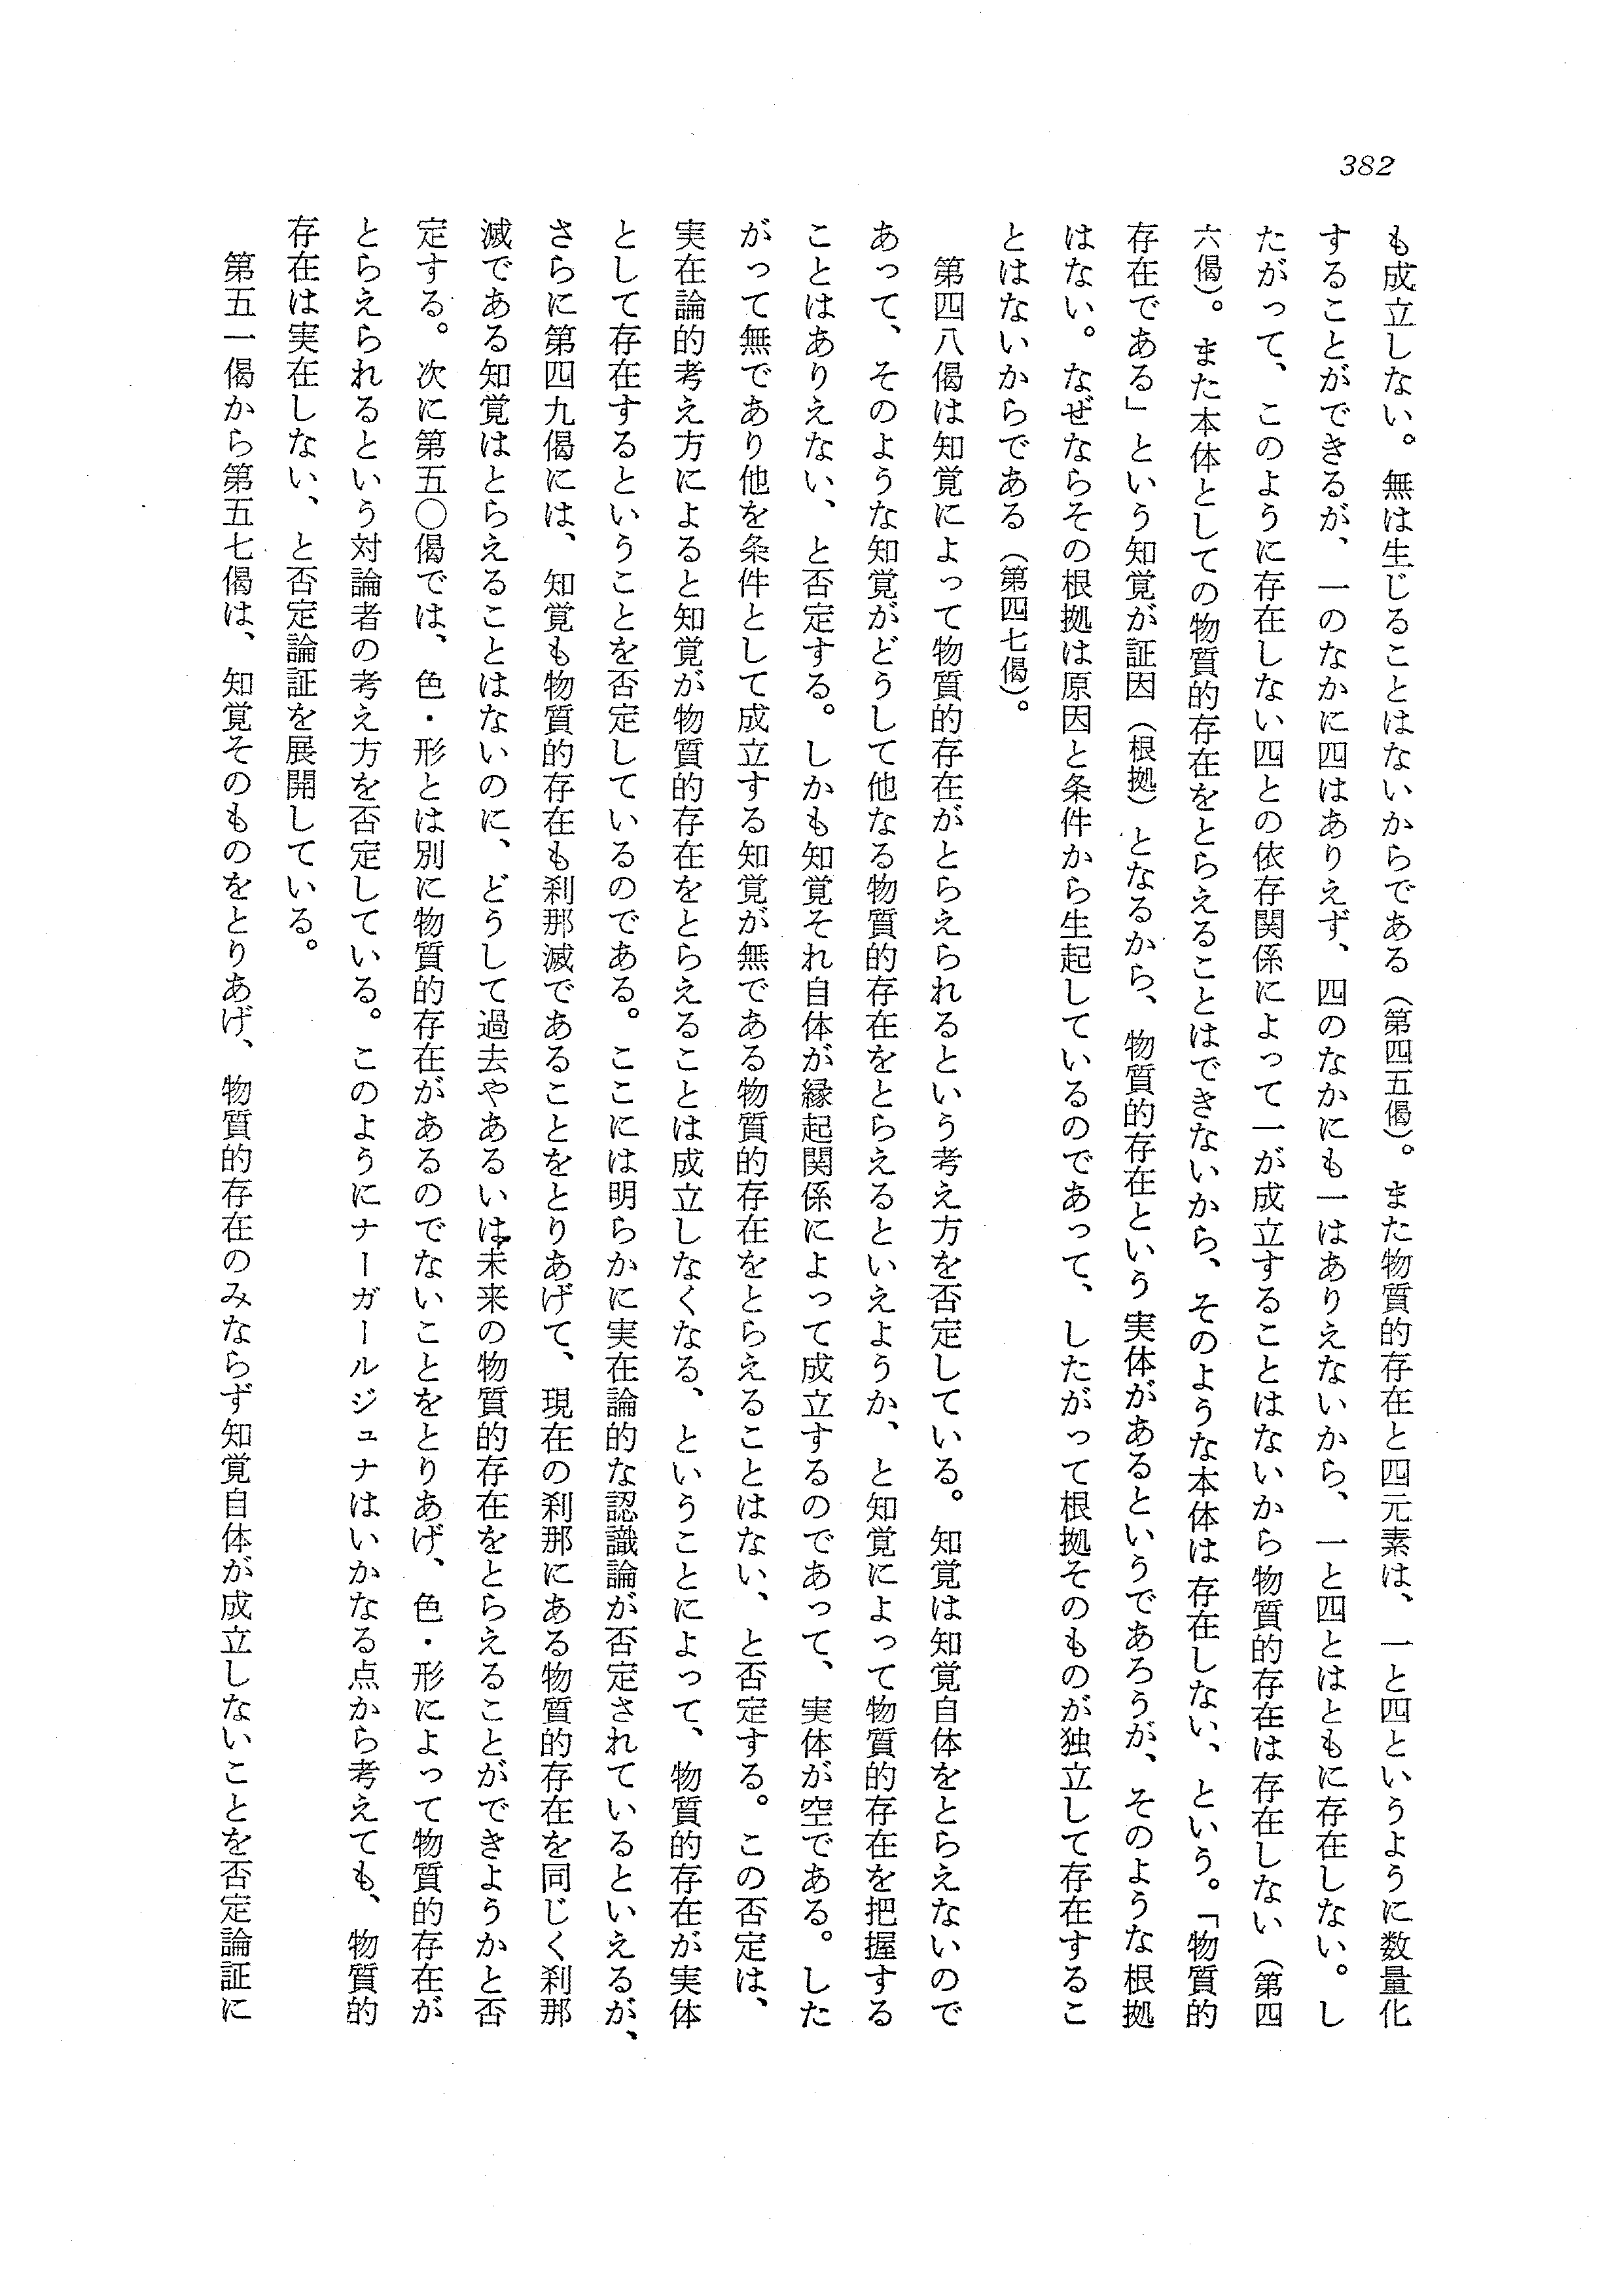 382
も成立しない。無は生じることはないからである（第四五偈）。また物質的存在と四元素は、一と四というように数量化
することができるが、一のなかに四はありえず、四のなかにも一はありえないから、一と四とはともに存在しない。し
たがって、このように存在しない四との依存関係によって一が成立することはないから物質的存在は存在しない（第四
六偈）。また本体としての物質的存在をとらえることはできないから、そのような本体は存在しない、という。「物質的
存在である」という知覚が証因（根拠）となるから、物質的存在という実体があるというであろうが、そのような根拠
はない。なぜならその根拠は原因と条件から生起しているのであって、したがって根拠そのものが独立して存在するこ
とはないからである（第四七偈）。
第四八偈は知覚によって物質的存在がとらえられるという考え方を否定している。知覚は知覚自体をとらえないので
あって、そのような知覚がどうして他なる物質的存在をとらえるといえようか、と知覚によって物質的存在を把握する
ことはありえない、と否定する。しかも知覚それ自体が縁起関係によって成立するのであって、実体が空である。した
がって無であり他を条件として成立する知覚が無である物質的存在をとらえることはない、と否定する。この否定は、
実在論的考え方によると知覚が物質的存在をとらえることは成立しなくなる、ということによって、物質的存在が実体
として存在するということを否定しているのである。ここには明らかに実在論的な認識論が否定されているといえるが、
さらに第四九偈には、知覚も物質的存在も刹那滅であることをとりあげて、現在の刹那にある物質的存在を同じく刹那
滅である知覚はとらえることはないのに、どうして過去やあるいは未来の物質的存在をとらえることができようかと否
定する。次に第五〇偈では、色・形とは別に物質的存在があるのでないことをとりあげ、色・形によって物質的存在が
とらえられるという対論者の考え方を否定している。このようにナーガールジュナはいかなる点から考えても、物質的
存在は実在しない、と否定論証を展開している。
第五一偈から第五七偈は、知覚そのものをとりあげ、物質的存在のみならず知覚自体が成立しないことを否定論証に